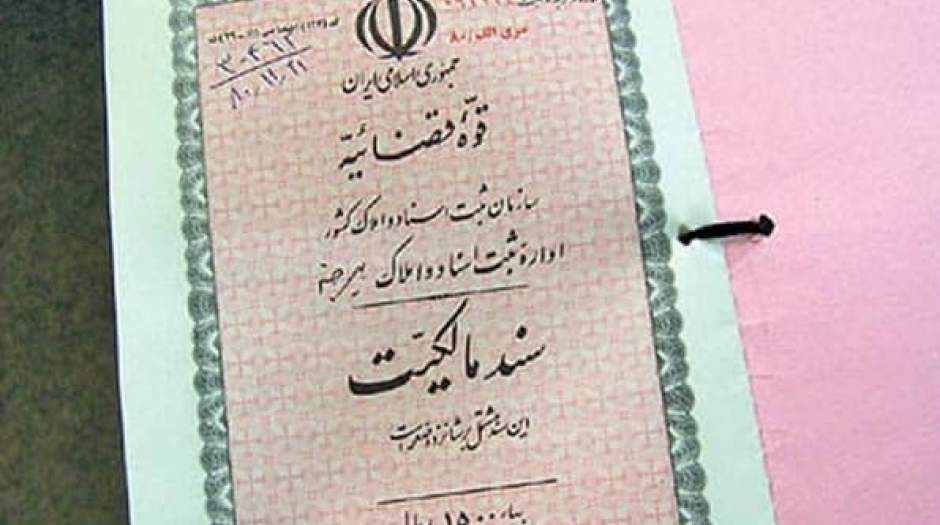 سری الف/۸۰
۳۰۴۶۲
۸۰,۱۱,۲۱
جمهوری اسلامی ایران
قوّهٔ قضائیّه
سازمان ثبت اسناد و املاک کشور
ادارهٔ ثبت اسناد و املاک
سند مالکیّت
این سند مشتمل بر شانزده صفحه است
بهاء ۱۵۰۰ ریال